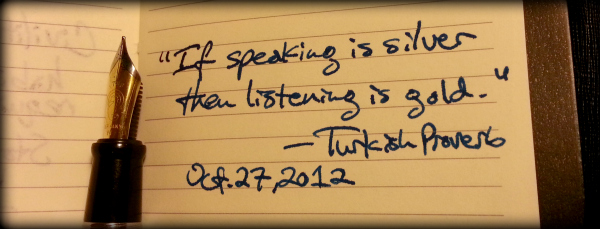 "If speaking is silver
then listening is gold."
— Turkish Proverb
Oct. 27, 2012